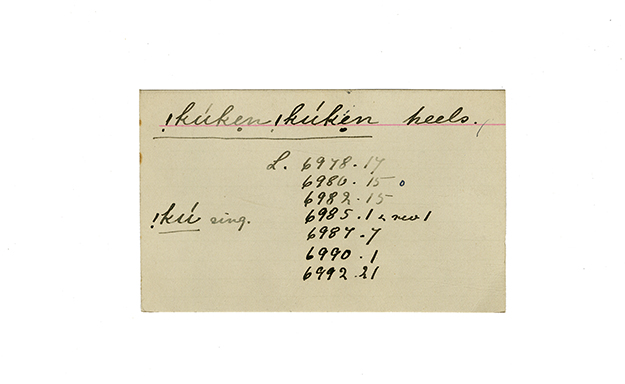 !kúken, !kúken heels.
L. 6978.17
6980.15
6982.15
!kú sing. 6985.1 & rev 1
6987.7
6990.1
6992.21